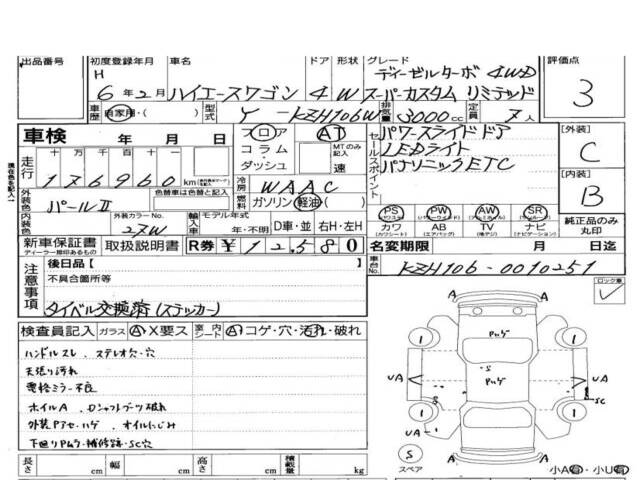 出品番号 初度登録年月 車名 ドア 形状 グレード 評価点
H 6年2月 ハイエースワゴン 4 W ディーゼルターボ 4WD スーパーカスタム リミテッド 3
車歴 自家用・( ) 型式 Y-KZH106W 排気量 3000cc 定員 7人
車検 年 月 日 フロア AT セールスポイント パワースライドドア [外装]
走行 十 万 千 百 十 コラム MTのみ記入 LEDライト C
176960 km ダッシュ 速 パナソニックETC [内装]
外装色 色替車は色替と記入 冷房 WAAC B
パールⅡ 燃料 ガソリン 軽油 ( ) PS PW AW SR 純正品のみ丸印
内装色 外装カラーNo. 27W 輸入車 モデル年式 年・不明 D車・並 右H・左H カワ AB TV ナビ
新車保証書 取扱説明書 R券 ¥12,580 名変期限 月 日迄
ディーラー捺印あるもの
注意事項 後日品[ ] 車台No. KZH106-0010251
不具合箇所等 ロック車
タイベル交換済(ステッカー)
検査員記入 ガラス A X要ス 室内 シート A コゲ・穴・汚れ・破れ
ハンドルスレ、ステレオ穴・穴
天張り汚れ
電格ミラー不良
ホイルA
外装Pアセ・ハゲ、オイルにじみ
下廻りPムケ・補修跡・SC穴
長さ cm 幅 cm 高さ cm 積載量 kg
A
1 1
Pハゲ
UA S Pハゲ UA
SC
1 1
UA
S スペア A 小A有・小U有